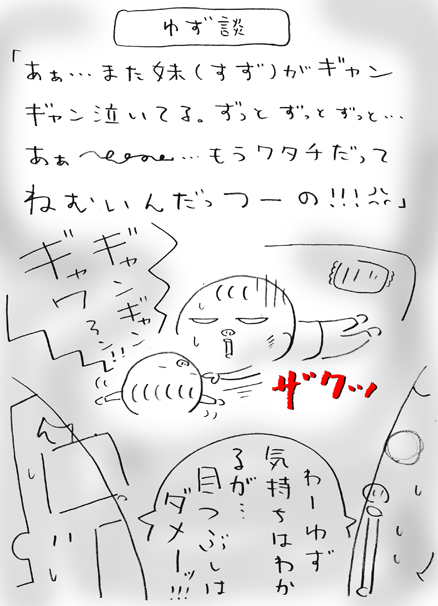 ゆず談
「あぁ…また妹(すず)がギャン
ギャン泣いてる。ずっとずっとずっと…
あぁ〜…もうワタチだって
ねむいんだっつーの!!!」
ギャン
ギャン
ギャワ
ザクッ
わーゆず
気持ちはわか
るが…
目つぶしは
ダメーッ!!!